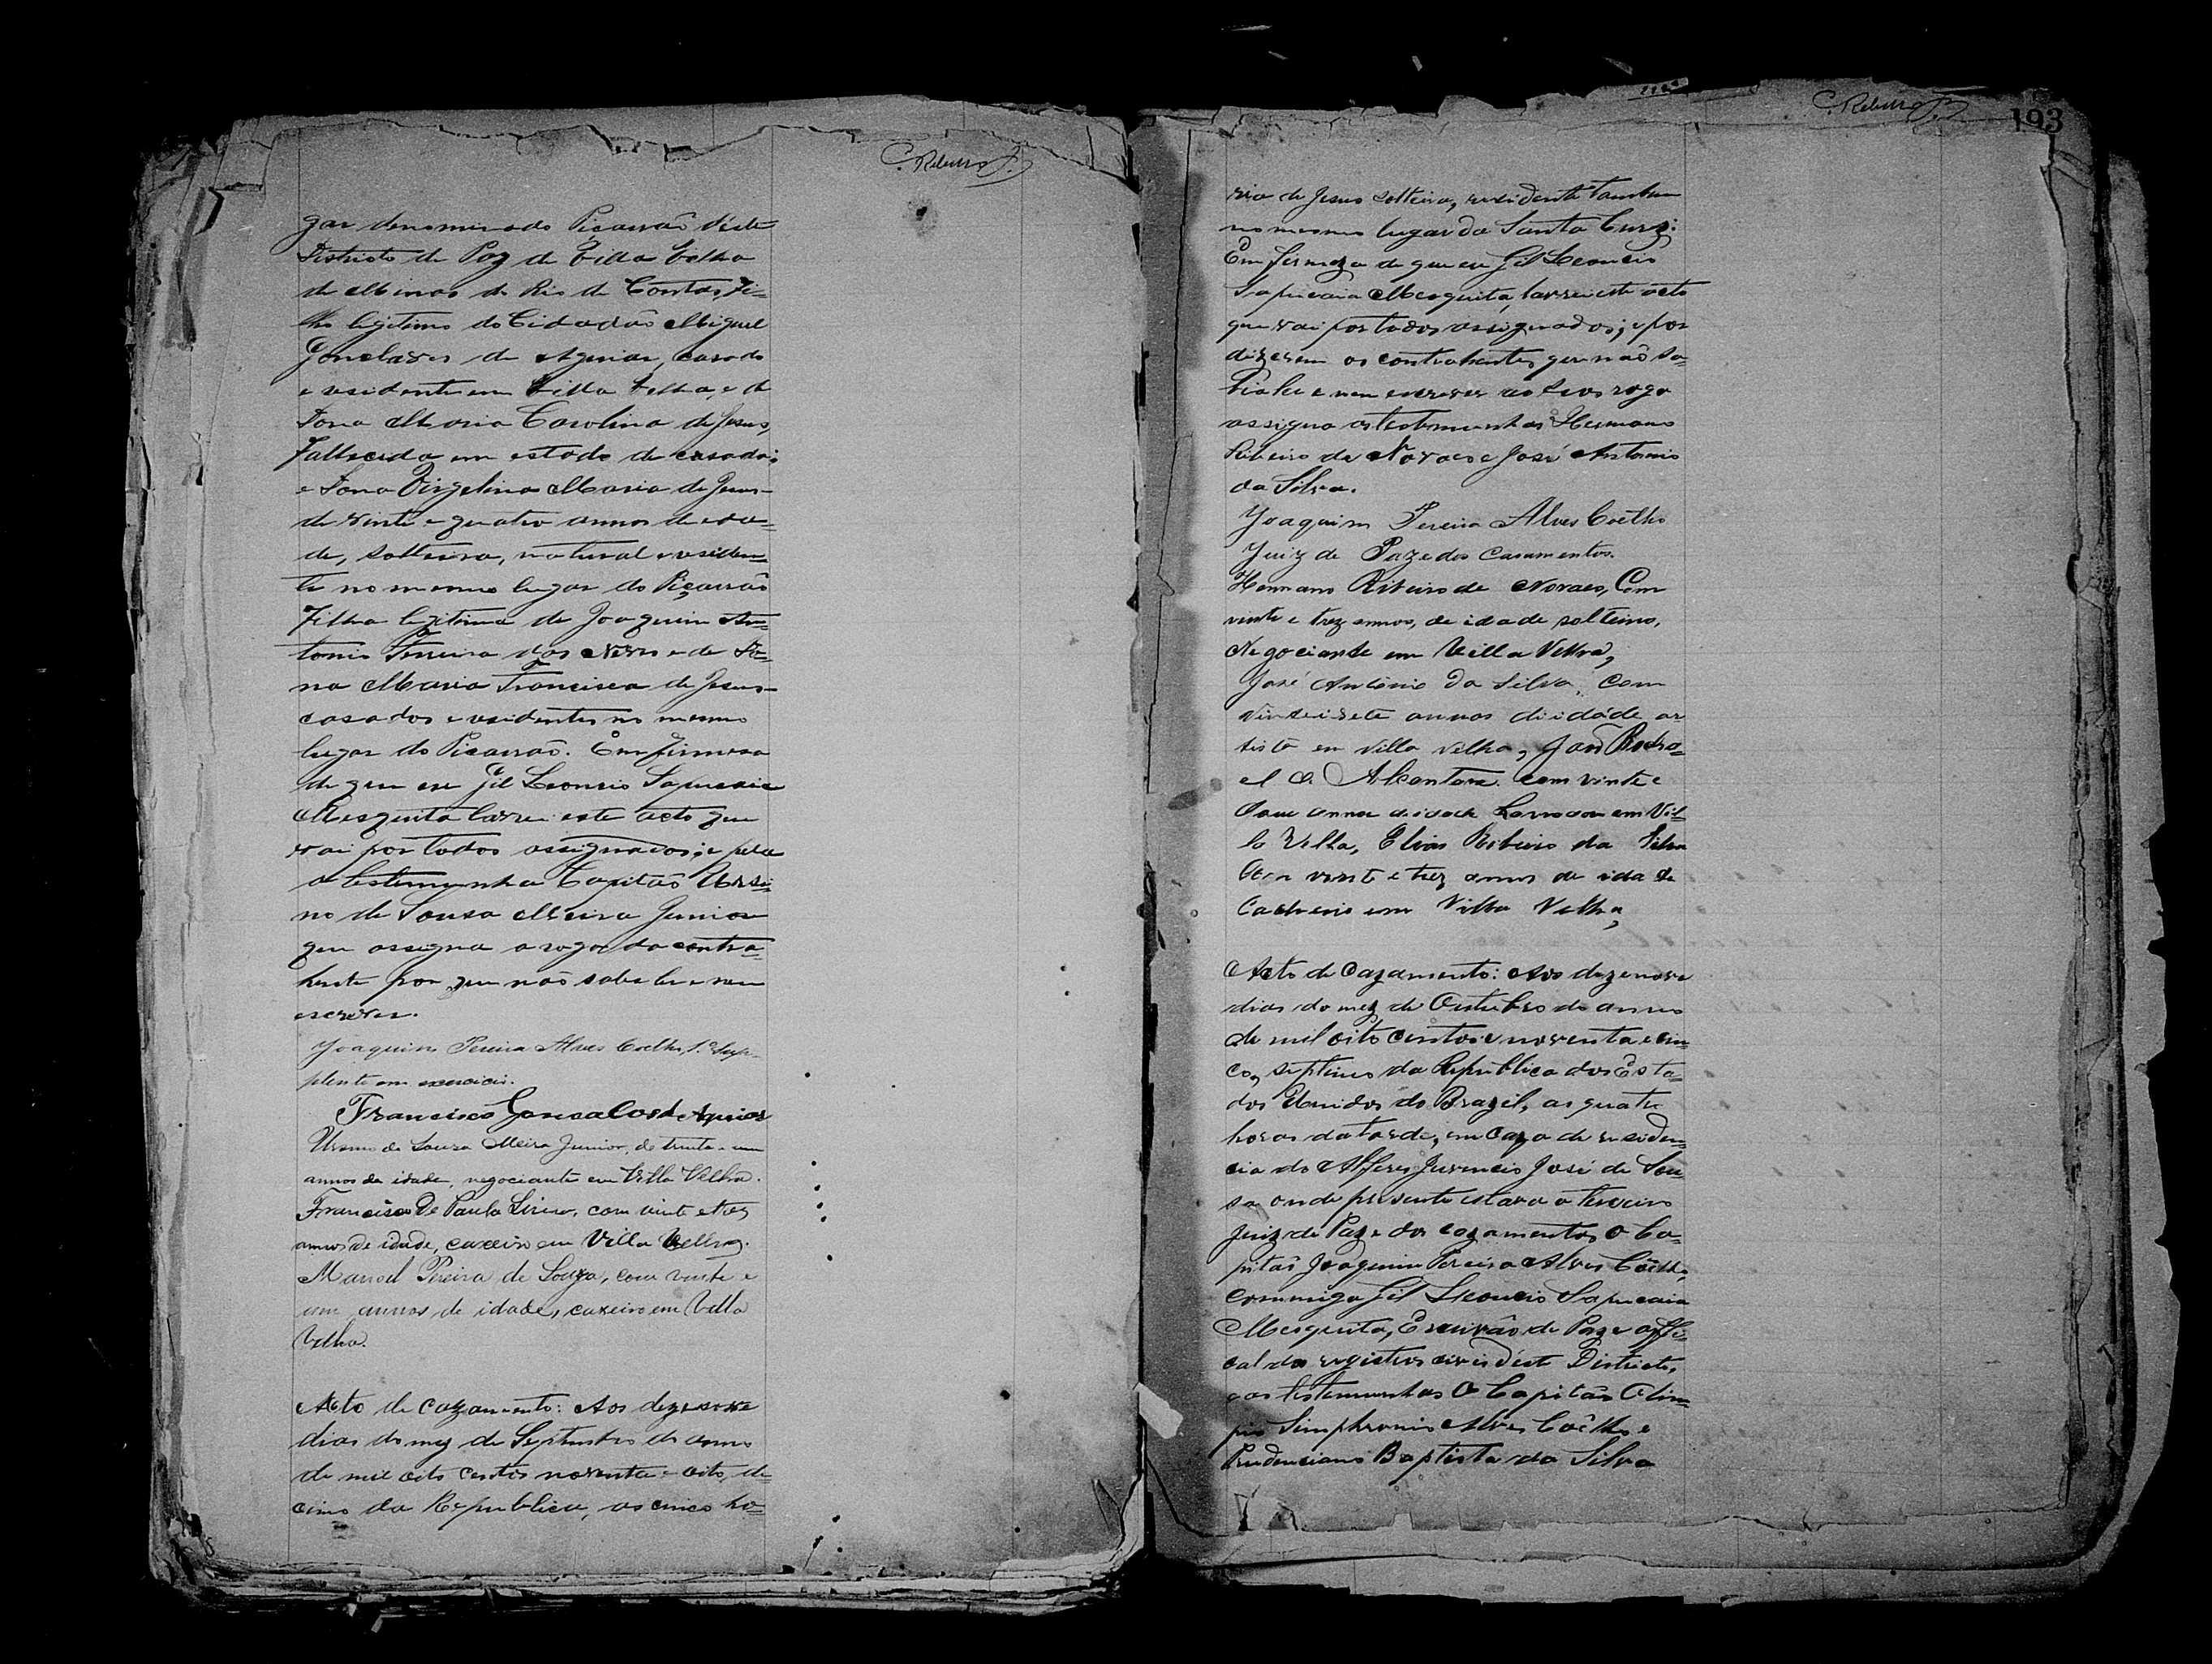 C. Rebello
gar denominado Piçarrão d'este
Districto de Paz de Villa Velha
de Minas do Rio de Contas, fi=
lho legitimo do Cidadão Miguel
Gonclaves de Aguiar, casado
e residente em Villa Velha, e de
Dona Maria Carolina de Jesus,
fallecida em estado de casada;
e Dona Virgelina Maria de Jesus-
de vinte e quatro annos de eda=
de, solteira, natural e residen=
te no mesmo lugar do Piçarrão
Filha legitima de Joaquim An=
tonio Ferreira das Neves e de Do=
na Maria Francisca de Jesus-
casados e residentes no mesmo
lugar do Picarrão. Em firmesa
de que eu Gil Leoncio Sapucaia
Mesquita lavrei este acto que
vai por todos assignados; e pela
a testemunha Capitão Ursi=
no de Sousa Meira Junior
que assigna a rogo da contra=
hente por que não sabe ler e nem
escrever.
Joaquim Pereira Alves Coelho, 1º Sup-
plente em exercicio.
Francisco Gonsalves de Aguiar
Ursino de Souza Meira Junior, de trinta e um
annos de idade, negociante em Villa Velha.
Francisco De Paula Lirio, com vinte e trez
annos de idade, caxeiro em Villa Velha.
Manoel Pereira de Souza, com vinte e
um annos de idade, caxeiro em Villa
Velha.
Acto de Cazamento: Aos dezenove
dias do mez de Septembro do anno
de mil oito centos noventa e oito, de=
cimo da Republica, as cinco ho=
C. Rebello
193
ria de Jesus solteira, residente tambem
no mesmo lugar da Santa Cruz:
Em firmeza de que eu Gil Leoncio
Sapucaia Mesquita, lavrei este acto
que vai por todos assignados; e por
dizerem os contrahentes que não sa=
bia ler e nem escrever ao seos rogo
assigna as testemunhas Hermano
Ribeiro de Novaes e José Antonio
da Silva.
Joaquim Pereira Alves Coêlho
Juiz de Paz e dos Casamentos.
Hermano Ribeiro de Novaes, Com
vinte e trez annos, de idade solteiro,
Negociante em Villa Velha,
José Antonio da Silva, com
vinte i sete annos di idáde ar
tista em villa velha, José
Alcantara com vinte e
annos
em Vil=
la Velha, Elias Ribeiro da Silva
Com vinte e trez annos de idade
em Villa Velha,
Acto de Cazamento: Aos dezenove
dias do mez de Outubro do anno
de mil oito centos e noventa e cin
co, septimo da Republica dos Esta=
dos Unidos do Brazil, as quatro
horas da tarde, em caza de residen=
cia do Alferes Juvencio José de Sou=
sa onde presente estava o terceiro
Juiz de Paz e dos cazamentos, o Ca=
pitão Joaquim Pereira Alves Coêlho,
commigo Gil Leoncio Sapucaia
Mesquita, Escrivão de Paz e offi=
cal dos registros civis d'este Districto,
e as testemunhas O Capitão Olim=
pio Simphronio Alves Coêlho e
Prudenciano Baptista da Silva